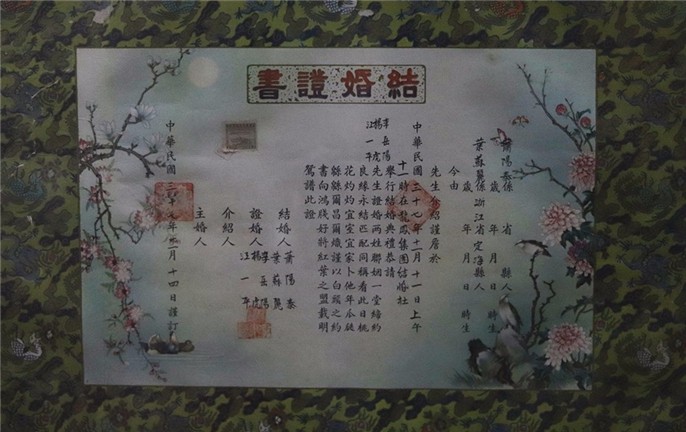 結婚證書
陽泰係 省 縣人
歲 年 月 日 時生
葉蘇麗係浙江省定海縣人
歲 年 月 日 時生
今由
先生介紹謹詹於
中華民國三十七年十一月十一日上午
十一時在龍鳳集團結婚社
舉行結婚典禮恭請
李岳陽
楊虎
汪一平
先生證婚兩姓聯姻一堂締約
良緣永結匹配同稱看此日桃
花灼灼宜室宜家卜他年瓜瓞
緜緜爾昌爾熾謹以白頭之約
書向鴻牋好將紅葉之盟載明
鴛譜此證
結婚人 陽泰
葉蘇麗
證婚人 李岳陽
楊虎
汪一平
介紹人
主婚人
中華民國三十 年 月十四日謹訂